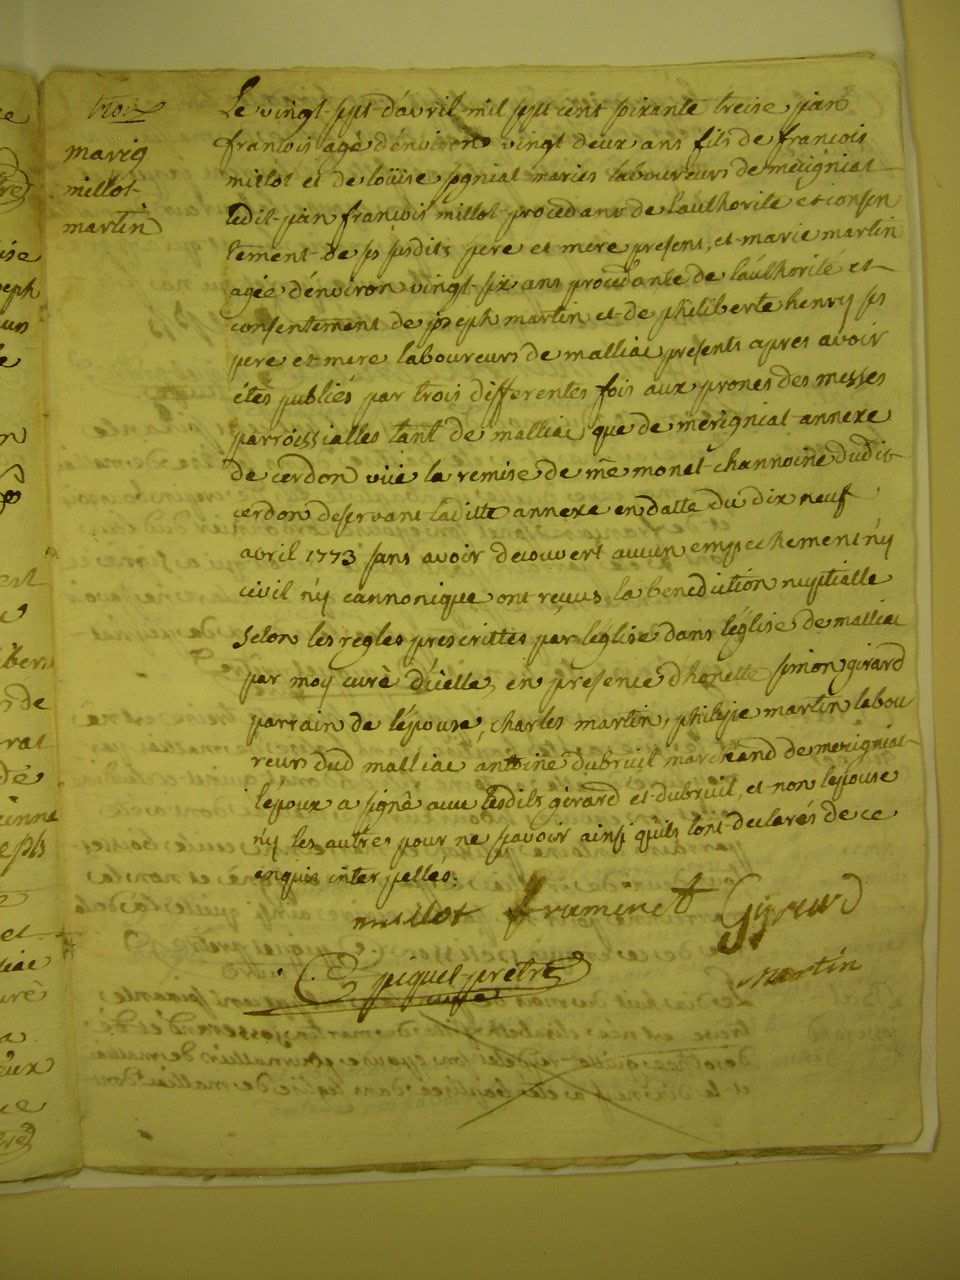 trois
mariag
millot
martin
Le vingt sept d'avril mil sept cent soixante treise jean
francois agé d'environ vingt deux ans fils de francois
millot et de loüise mariés laboureurs de merigniat
ledit jean francois millot procedant de l'authorité et consen
tement de ses susdits pere et mere presens, et marie martin
agée d'environ vingt six ans procedante de l'authorité et
consentement de joseph martin et de philiberte henry ses
pere et mere laboureurs de malliac presents apres avoir
étés publiés par trois differentes fois aux prones des messes
parroissialles tant de malliac que de merigniat annexe
de cerdon vüe la remise de mre monet channoine dudit
cerdon deservant laditte annexe en datte du dix neuf
avril 1773 sans avoir decouvert aucun empechement n'y
civil n'y cannonique ont reçus la benediction nuptialle
selon les regles prescrittes par l'église dans l'église de malliac
par moy curé d'icelle, en presence d'honette simon girard
parrain de l'épouse, charles martin, philipe martin labou
reurs dud malliac antoine dubreuil marchand de merigniat
l'époux a signé avec lesdits girard et dubreuil, et non l'épouse
n'y les autres pour ne sçavoir ainsi qu'ils l'ont declarés de ce
enquis interpellés.
millot Girard
piquet pretre
curé
martin